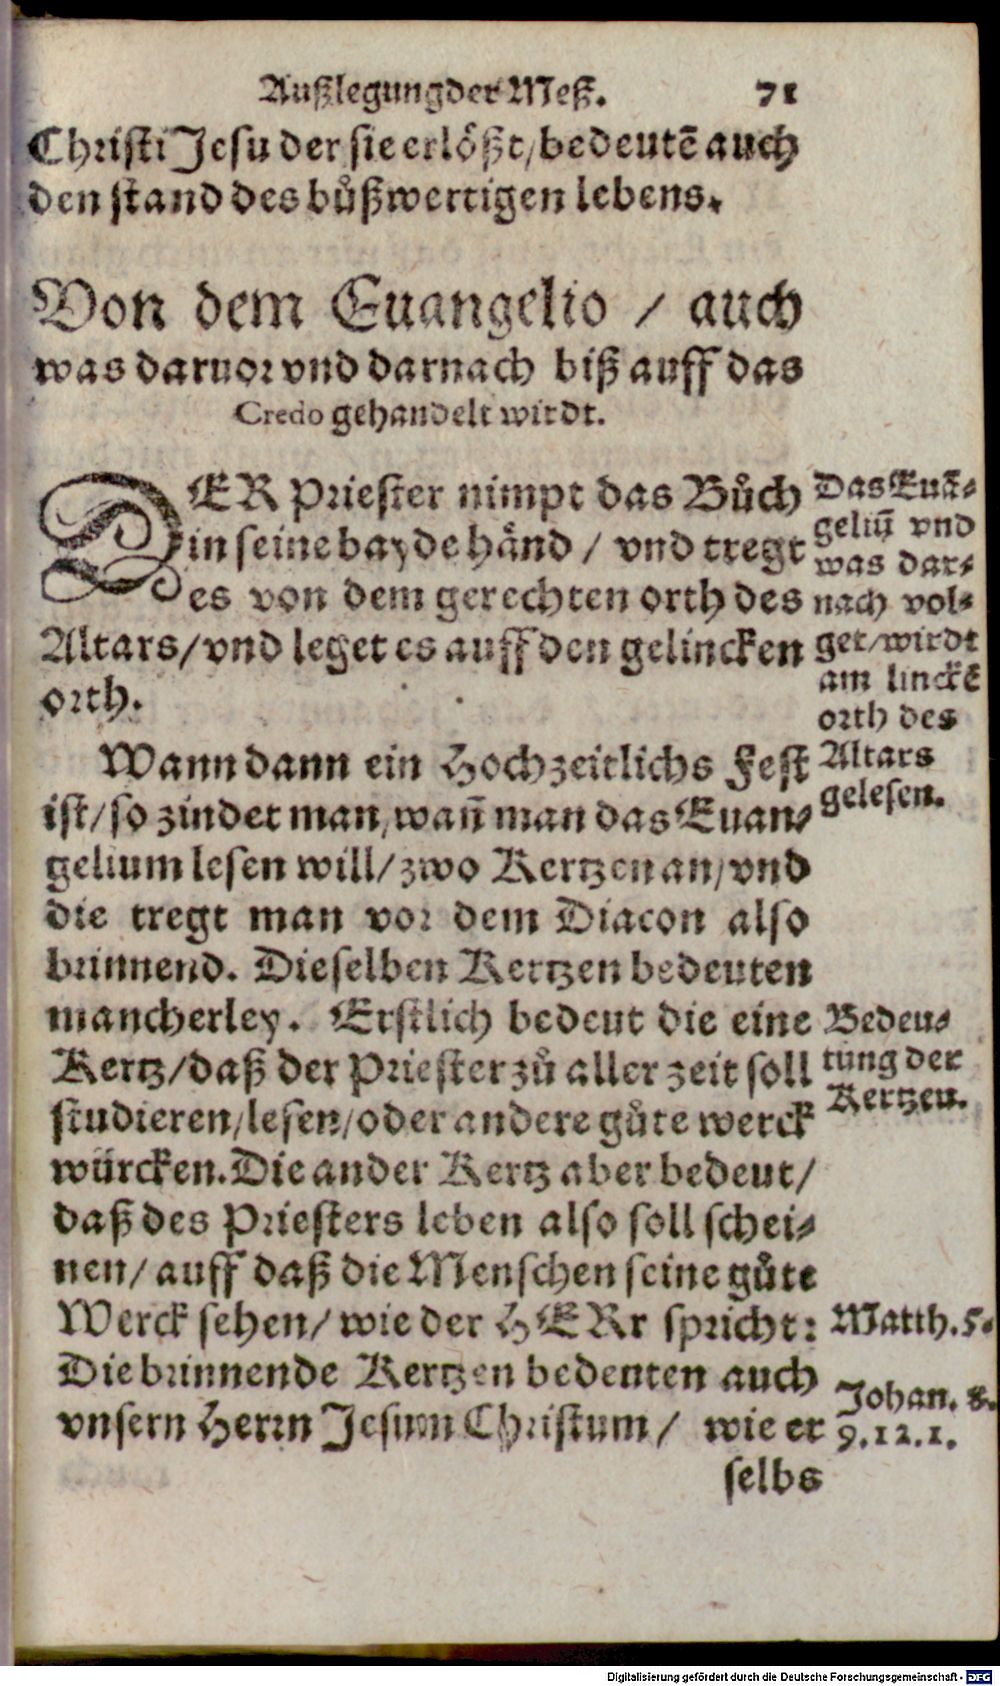 Außlegung der Meß. 71
Christi Jesu der sie erlößt/ bedeutē auch
den stand des bůßwertigen lebens.
Von dem Euangelio / auch
was daruor vnd darnach biß auff das
Credo gehandelt wirdt.
DER Priester nimpt das Bůch
in seine bayde händ / vnd tregt
es von dem gerechten orth des
Altars/ vnd leget es auff den gelincken
orth.
Das Euā-
geliū vnd
was dar-
nach vol-
get/ wirdt
am linckē
orth des
Altars
gelesen.
Wann dann ein Hochzeitlichs Fest
ist/ so zindet man, wañ man das Euan-
gelium lesen will/ zwo Kertzen an/ vnd
die tregt man vor dem Diacon also
brinnend. Dieselben Kertzen bedeuten
mancherley. Erstlich bedeut die eine
Kertz/ daß der Priester zů aller zeit soll
studieren/ lesen/ oder andere gůte werck
würcken. Die ander Kertz aber bedeut/
daß des Priesters leben also soll schei-
nen/ auff daß die Menschen seine gůte
Werck sehen/ wie der HERr spricht:
Die brinnende Kertzen bedeuten auch
vnsern Herrn Jesum Christum / wie er
Bedeu-
tung der
Kertzen.
Matth. 5.
Johan. 8.
9. 12. 1.
selbs
Digitalisierung gefördert durch die Deutsche Forschungsgemeinschaft - DFG